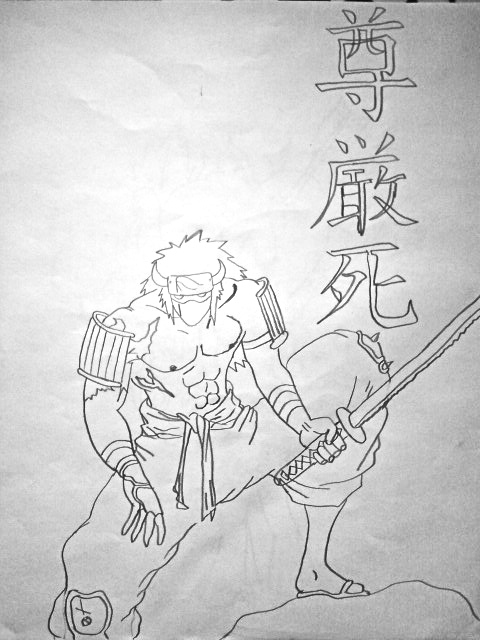 尊厳死